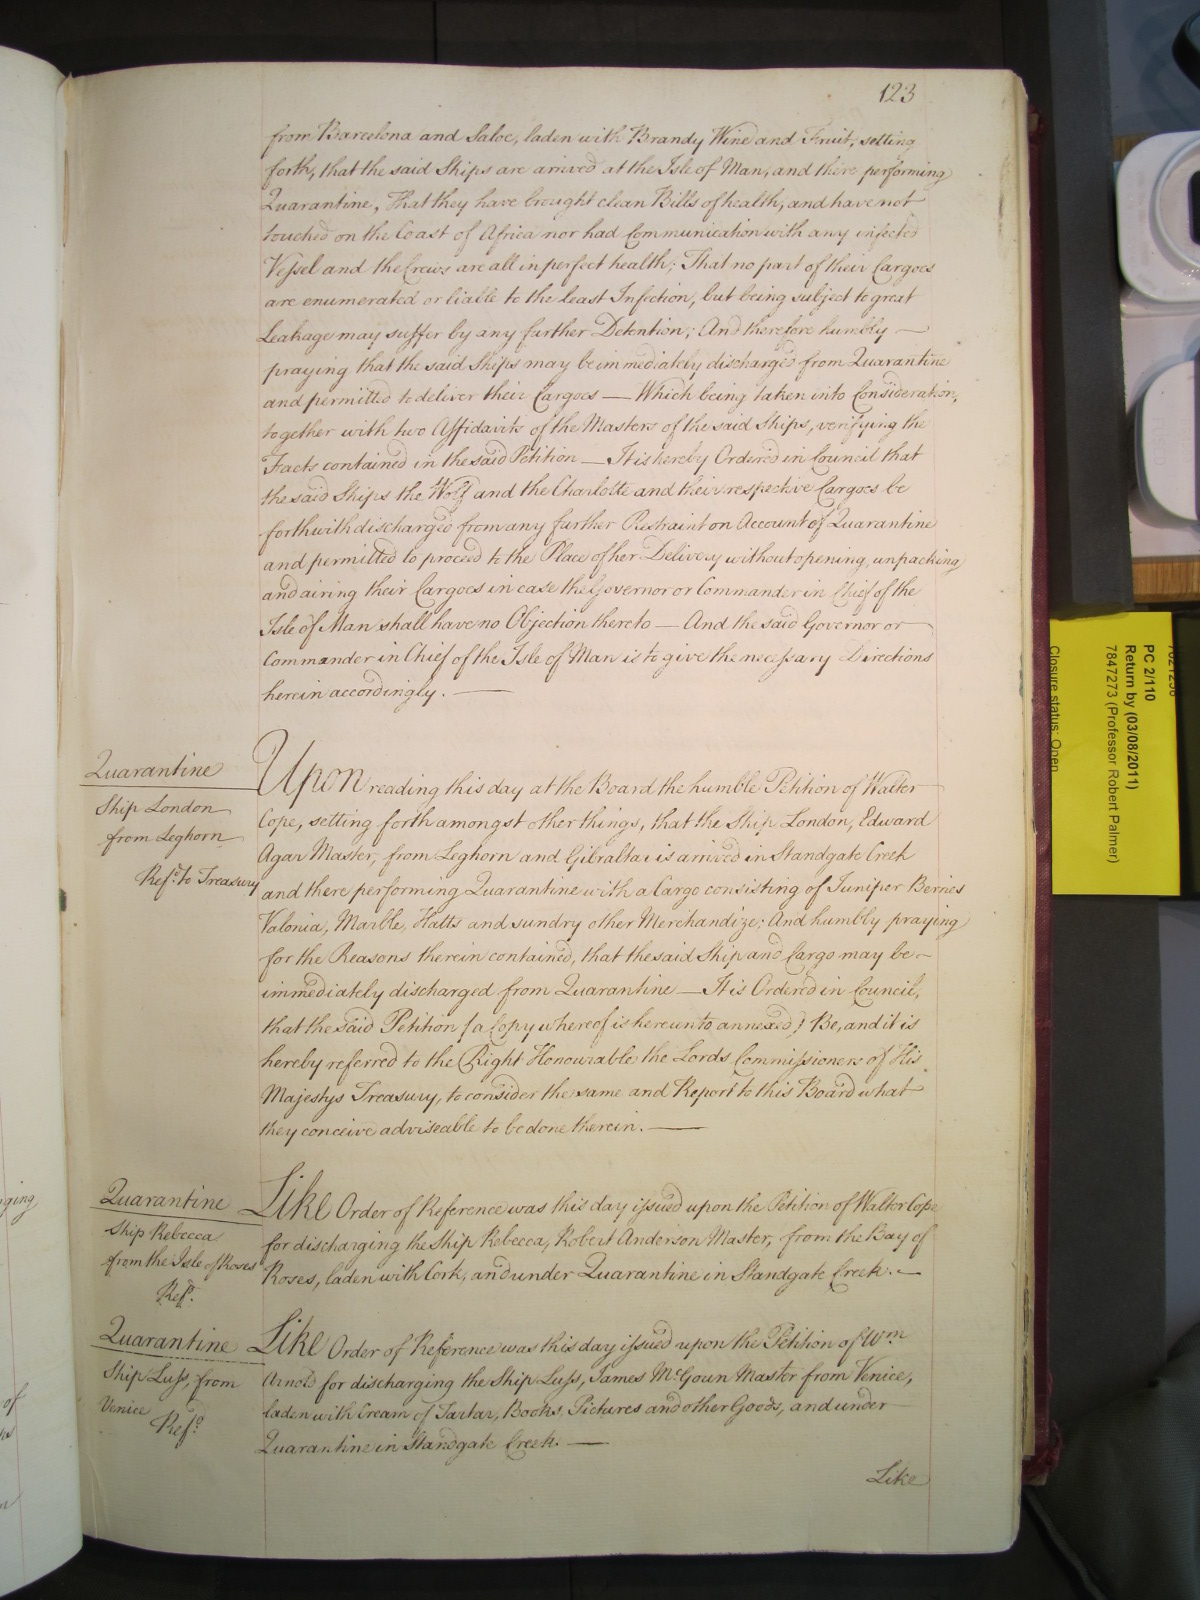 123
from Barcelona and Saloe, laden with Brandy Wine and Fruit, setting
forth, that the said Ships are arrived at the Isle of Man, and there performing
Quarantine, That they have brought clean Bills of health, and have not
touched on the Coast of Africa nor had Communication with any infected
Vessel and the Crews are all in perfect health; That no part of their Cargoes
are enumerated or liable to the least Infection, but being subject to great
Leakage may suffer by any further Detention; And therefore humbly —
praying that the said Ships may be immediately discharged from Quarantine
and permitted to deliver their Cargoes — Which being taken into Consideration,
together with two Affidavits of the Masters of the said Ships, verifying the
Facts contained in the said Petition — It is hereby Ordered in Council that
the said Ships the Wolf and the Charlotte and their respective Cargoes be
forthwith discharged from any further Restraint on Account of Quarantine
and permitted to proceed to the Place of her Delivery without opening, unpacking
and airing their Cargoes in case the Governor or Commander in Chief of the
Isle of Man shall have no Objection thereto — And the said Governor or
Commander in Chief of the Isle of Man is to give the necessary Directions
herein accordingly. —
Quarantine
Ship London
from Leghorn
Refce. to Treasury
Upon reading this day at the Board the humble Petition of Walter
Cope, setting forth amongst other things, that the Ship London, Edward
Agar Master, from Leghorn and Gibraltar is arrived in Standgate Creek
and there performing Quarantine with a Cargo consisting of Juniper Berries
Valonia, Marble, Hatts and sundry other Merchandize; And humbly praying
for the Reasons therein contained, that the said Ship and Cargo may be —
immediately discharged from Quarantine — It is Ordered in Council,
that the said Petition (a Copy whereof is hereunto annexed) Be, and it is
hereby referred to the Right Honourable the Lords Commissioners of His
Majestys Treasury, to consider the same and Report to this Board what
they conceive adviseable to be done therein. —
Quarantine
Ship Rebecca
from the Isle of Roses
Refce.
Like Order of Reference was this day issued upon the Petition of Walter Cope
for discharging the Ship Rebecca, Robert Anderson Master, from the Bay of
Roses, laden with Cork, and under Quarantine in Standgate Creek. —
Quarantine
Ship Luss, from
Venice
Refce.
Like Order of Reference was this day issued upon the Petition of Wm
Arnold for discharging the Ship Luss, James McGoun Master from Venice,
laden with Cream of Tartar, Books, Pictures and other Goods, and under
Quarantine in Standgate Creek. —
Like
PC 2/110
Return by (03/08/2011)
7847273 (Professor Robert Palmer)
Closure status: Open